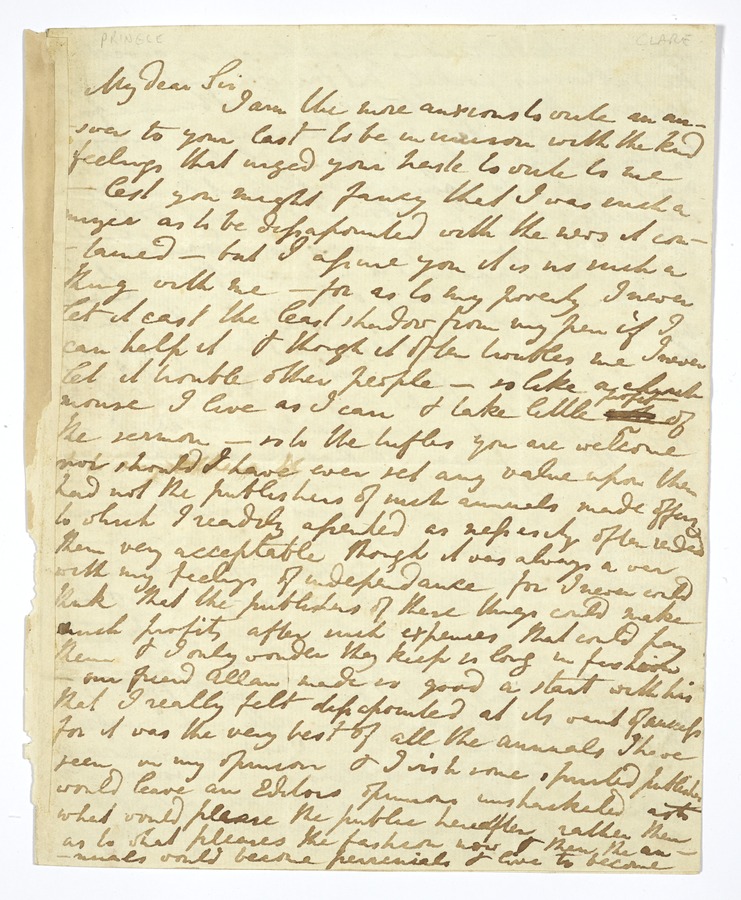 PRINGLE CLARE
My dear Sir
I am the more anxious to write an an-
-swer to your last to be in unison with the kind
feelings that urged your haste to write to me
- lest you might fancy that I was such a
as to be dissapointed with the news it con-
-tained - but I assure you it is no such a
thing with me - for as to my poverty I never
let it cast the least shadow from my pen if I
can help it & though it often troubles me I never
let it trouble other people - so like a church
mouse I live as I can & take little profit of
the sermon - as to the trifles you are welcome
nor should I have ever set any value upon them
had not the publishers of such annuals made offers
to which I readily assented as nessesity often
them very acceptable though it was always a
with my feelings of independance for I never could
think that the publishers of these things could make
such profits after such expenses that could pay
them & I only wonder they keep so long in fashion
- our friend Allan made so good a start with his
that I really felt dissapointed at its want of success
for it was the very best of all the annuals I have
seen in my opinion & I wish some spirited publisher
would leave an Editors opinions unshackled as to
what would please the public hereafter rather then
as to what pleases the fashion now & then the an-
-nuals would become perrenials & live to become